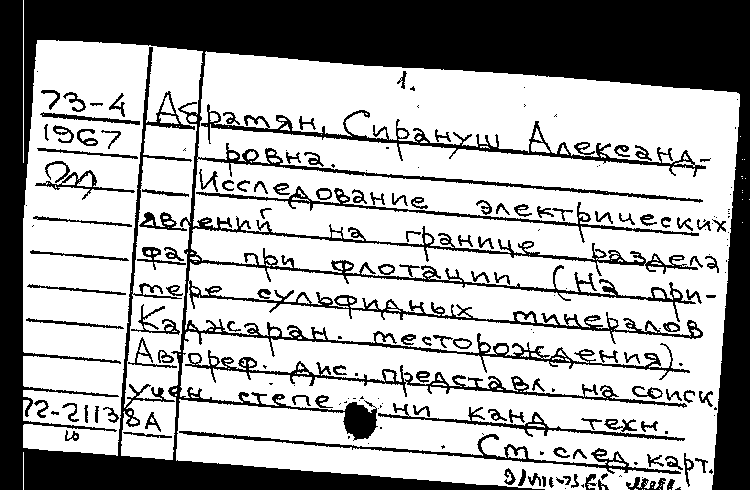 1.
73-4 Абрамян, Сирануш Александ-
1967 ровна.
Исследование электрических
явлений на границе раздела
фаз при флотации. (На при-
мере сульфидных минералов
Каджаран. месторождения).
Автореф. дис., представл. на соиск.
учен. степени канд. техн.
72-21138А
См. след. карт.